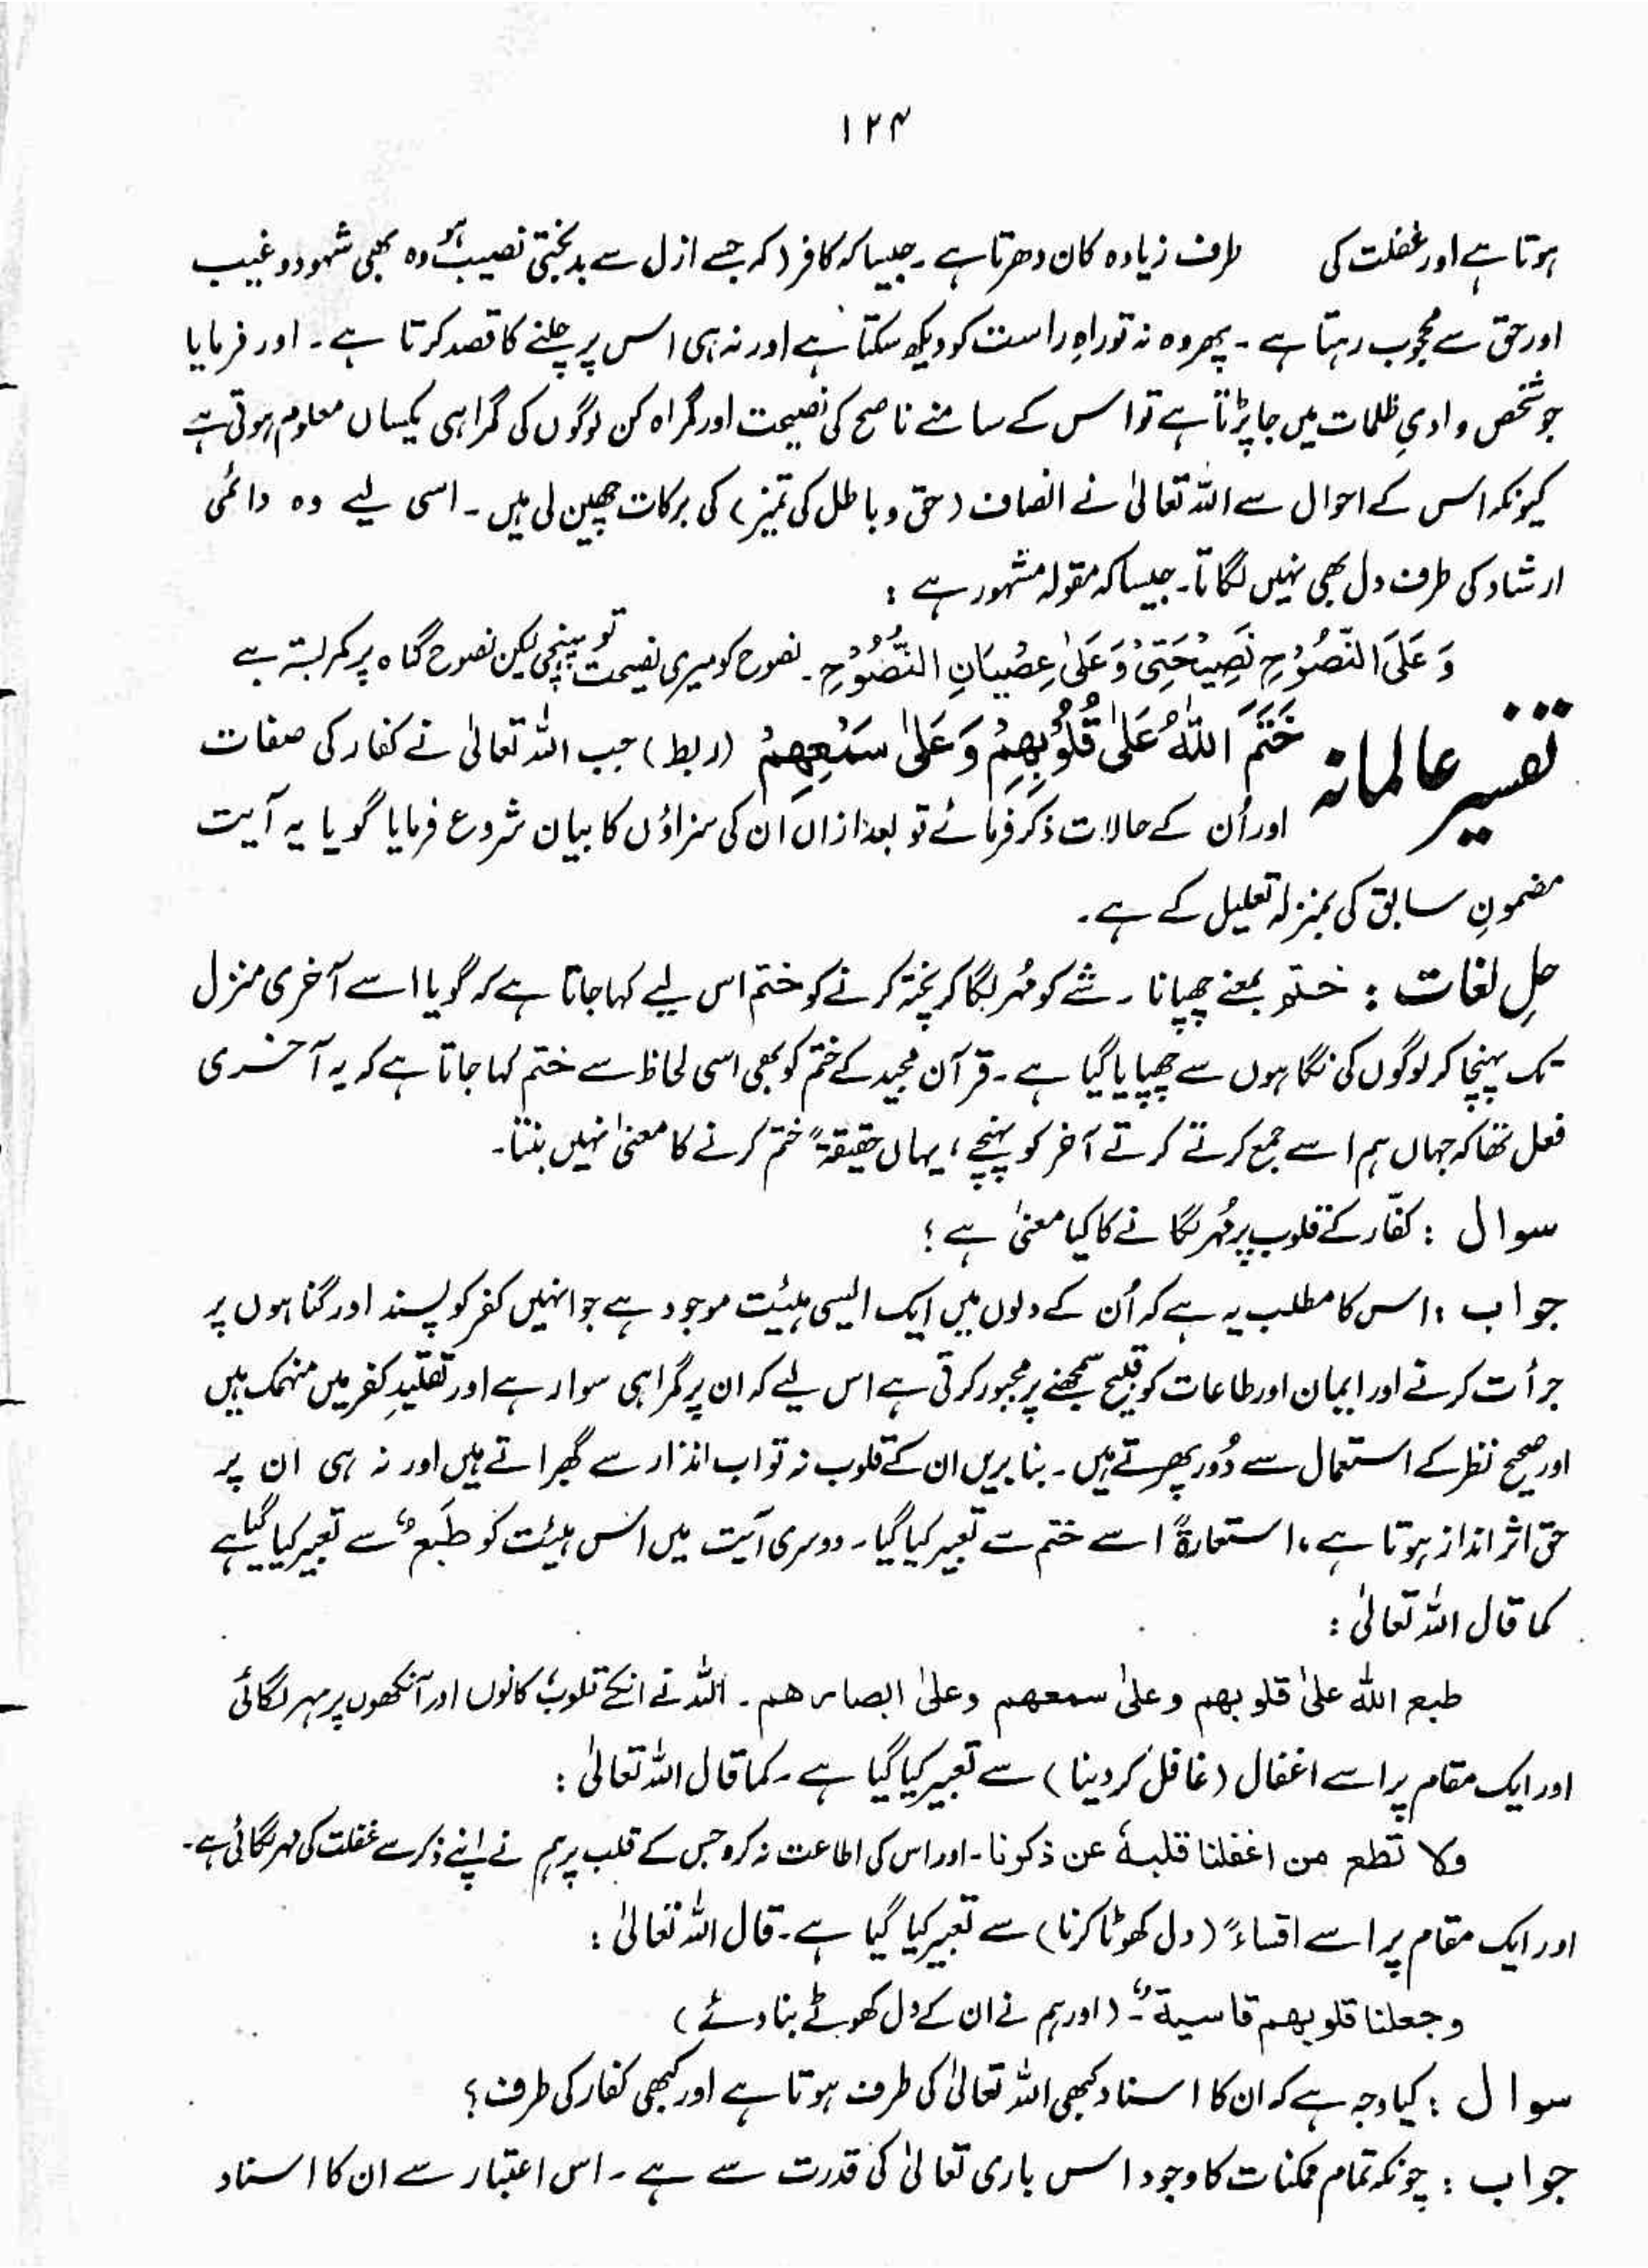 ۱۲۴
ہوتا ہے اور غفلت کی طرف زیادہ کان دھرتا ہے ۔ جیسا کہ کافر (کہ جسے ازل سے بدبختی نصیب ہو) وہ بھی شہود و غیب
اور حق سے محجوب رہتا ہے ۔ پھر وہ نہ تو راہِ راست کو دیکھ سکتا ہے اور نہ ہی اس پر چلنے کا قصد کرتا ہے ۔ اور فرمایا
جو شخص وادیِ ظلمات میں جا پڑتا ہے تو اس کے سامنے ناصح کی نصیحت اور گمراہ کن لوگوں کی گمراہی یکساں معلوم ہوتی ہے
کیونکہ اس کے احوال سے اللہ تعالیٰ نے انصاف (حق و باطل کی تمیز) کی برکات چھین لی ہیں ۔ اسی لیے وہ دائمی
ارشاد کی طرف دل بھی نہیں لگاتا ۔ جیسا کہ مقولہ مشہور ہے :
وَعَلَی النَّصُوْحِ نَصِیْحَتِیْ وَعَلیٰ عِصْیَانِ النُّصُوْحِ ۔ نصوح کو میری نصیحت تو پہنچی لیکن نصوح گناہ پر کمر بستہ ہے
تفسیر عالمانہ خَتَمَ اللّٰهُ عَلٰی قُلُوْبِهِمْ وَعَلٰی سَمْعِهِمْ (ربط) جب اللہ تعالیٰ نے کفار کی صفات
اور اُن کے حالات ذکر فرمائے تو بعد ازاں اُن کی سزاؤں کا بیان شروع فرمایا گویا یہ آیت
مضمونِ سابق کی بمنزلہ تعلیل کے ہے ۔
حلِ لغات : ختم بمعنے چھپانا ۔ شے کو مُہر لگا کر پختہ کرنے کو ختم اس لیے کہا جاتا ہے کہ گویا اسے آخری منزل
تک پہنچا کر لوگوں کی نگاہوں سے چھپایا گیا ہے ۔ قرآن مجید کے ختم کو بھی اسی لحاظ سے ختم کہا جاتا ہے کہ یہ آخری
فعل تھا کہ جہاں ہم اسے جمع کرتے کرتے آخر کو پہنچے ، یہاں حقیقۃً ختم کرنے کا معنیٰ نہیں بنتا ۔
سوال : کفّار کے قلوب پر مُہر لگانے کا کیا معنیٰ ہے ؟
جواب : اس کا مطلب یہ ہے کہ اُن کے دلوں میں ایک ایسی ہیئت موجود ہے جو انہیں کفر کو پسند اور گناہوں پر
جرأت کرنے اور ایمان اور طاعات کو قبیح سمجھنے پر مجبور کرتی ہے اس لیے کہ ان پر گمراہی سوار ہے اور تقلیدِ کفر میں منہمک ہیں
اور صحیح نظر کے استعمال سے دُور پھرتے ہیں ۔ بنا بریں ان کے قلوب نہ تو اب انذار سے گھبراتے ہیں اور نہ ہی ان پر
حق اثر انداز ہوتا ہے ، استعارۃً اسے ختم سے تعبیر کیا گیا ۔ دوسری آیت میں اس ہیئت کو طَبَع سے تعبیر کیا گیا ہے
کما قال اللہ تعالیٰ :
طبع اللّٰه علیٰ قلوبهم وعلیٰ سمعهم وعلیٰ ابصارهم ۔ اللہ نے انکے قلوب کانوں اور آنکھوں پر مہر لگائی
اور ایک مقام پر اسے اغفال (غافل کر دینا) سے تعبیر کیا گیا ہے ۔ کما قال اللہ تعالیٰ :
ولا تطع من اغفلنا قلبہٗ عن ذکرنا ۔ اور اس کی اطاعت نہ کرو جس کے قلب پر ہم نے اپنے ذکر سے غفلت کی مہر لگائی ہے ۔
اور ایک مقام پر اسے اقساءً (دل کھوٹا کرنا) سے تعبیر کیا گیا ہے ۔ قال اللہ تعالیٰ :
وجعلنا قلوبهم قاسیة ۔ (اور ہم نے ان کے دل کھوٹے بنا دئے)
سوال : کیا وجہ ہے کہ ان کا اسناد کبھی اللہ تعالیٰ کی طرف ہوتا ہے اور کبھی کفار کی طرف ؟
جواب : چونکہ تمام ممکنات کا وجود اس باری تعالیٰ کی قدرت سے ہے ۔ اس اعتبار سے ان کا اسناد